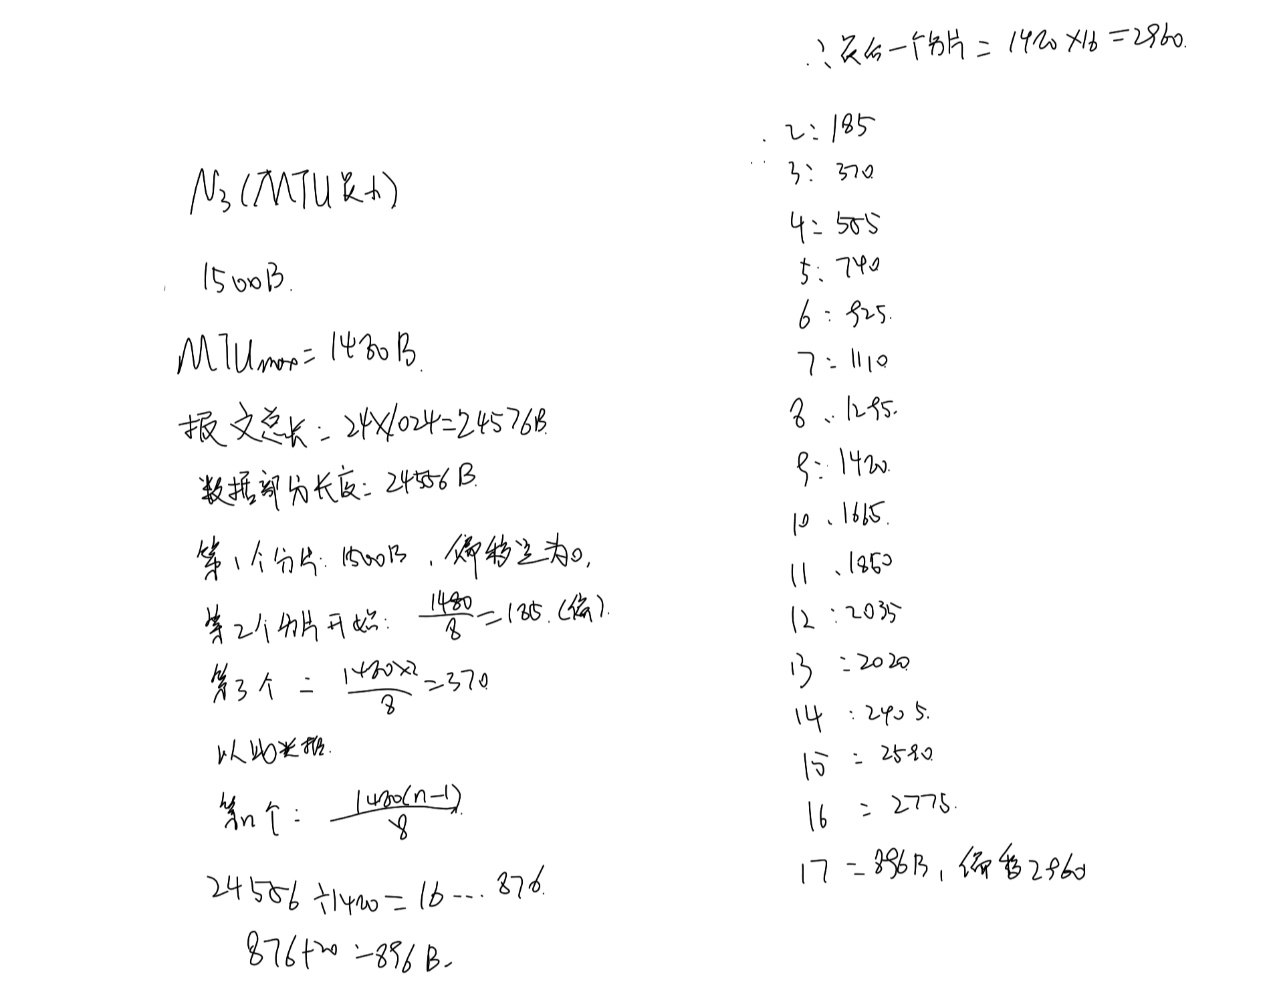 N3(MTU最小)
1500B.
MTUmax=1480B.
报文总长:24×1024=24576B.
数据部分长度:24556B.
第1个分片:1500B,偏移量为0,
第2个分片开始: 1480/8=185.(偏).
第3个 = 1480×2/8=370
以此类推.
第n个: 1480(n-1)/8
24556÷1480=16...876.
876+20=896B.
∴最后一个分片=1480×16=2960.
2:185
3:370
4:555
5:740
6:925.
7:1110
8:1295.
9:1480.
10:1665.
11:1850
12:2035
13:2020
14:2405.
15=2590
16=2775.
17=896B,偏移2960